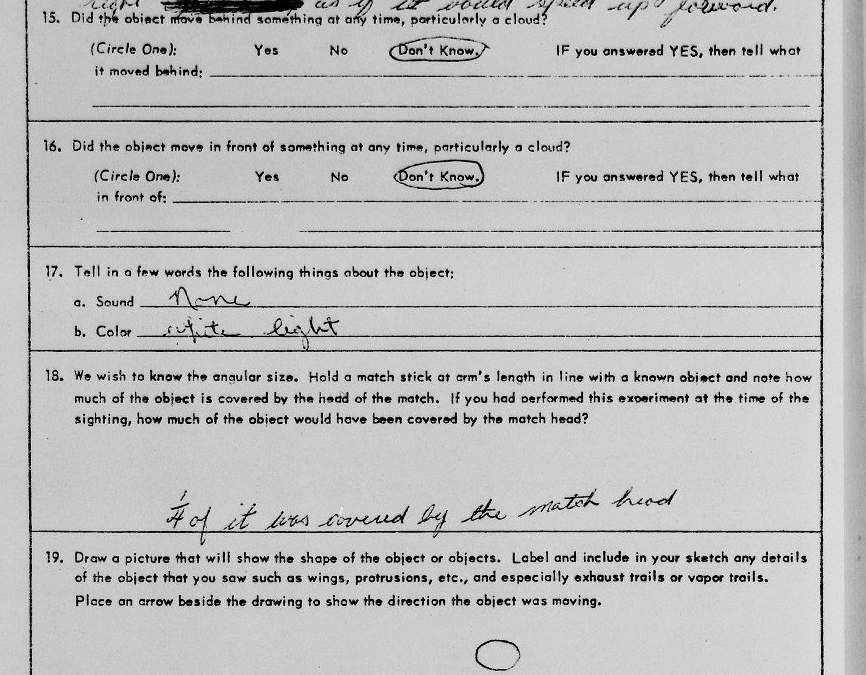 right as if it would speed up forward.
15. Did the object move behind something at any time, particularly a cloud?
(Circle One): Yes No Don't Know. IF you answered YES, then tell what
it moved behind:
16. Did the object move in front of something at any time, particularly a cloud?
(Circle One): Yes No Don't Know. IF you answered YES, then tell what
in front of:
17. Tell in a few words the following things about the object:
a. Sound None
b. Color white light
18. We wish to know the angular size. Hold a match stick at arm's length in line with a known object and note how
much of the object is covered by the head of the match. If you had performed this experiment at the time of the
sighting, how much of the object would have been covered by the match head?
1/4 of it was covered by the match head
19. Draw a picture that will show the shape of the object or objects. Label and include in your sketch any details
of the object that you saw such as wings, protrusions, etc., and especially exhaust trails or vapor trails.
Place an arrow beside the drawing to show the direction the object was moving.